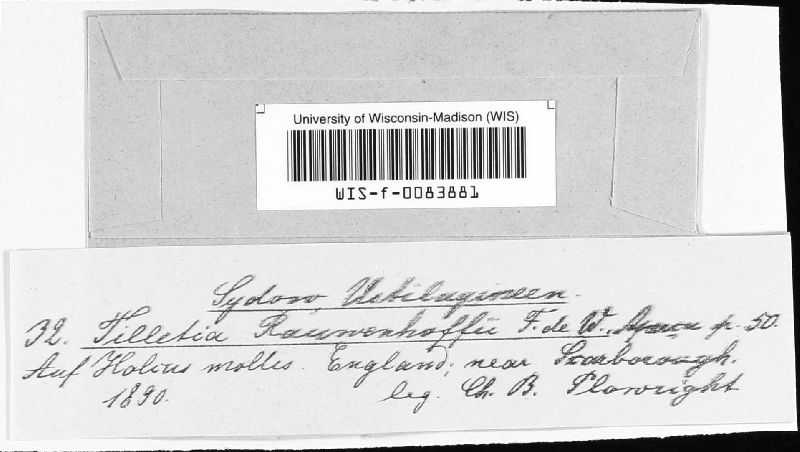 University of Wisconsin-Madison (WIS)
WIS-f-0083881
Sydow Ustilagineen.
32. Tilletia Rauwenhoffii F. de W. p. 50.
Auf Holcus mollis England; near Scarborough.
1890. leg. Ch. B. Plowright